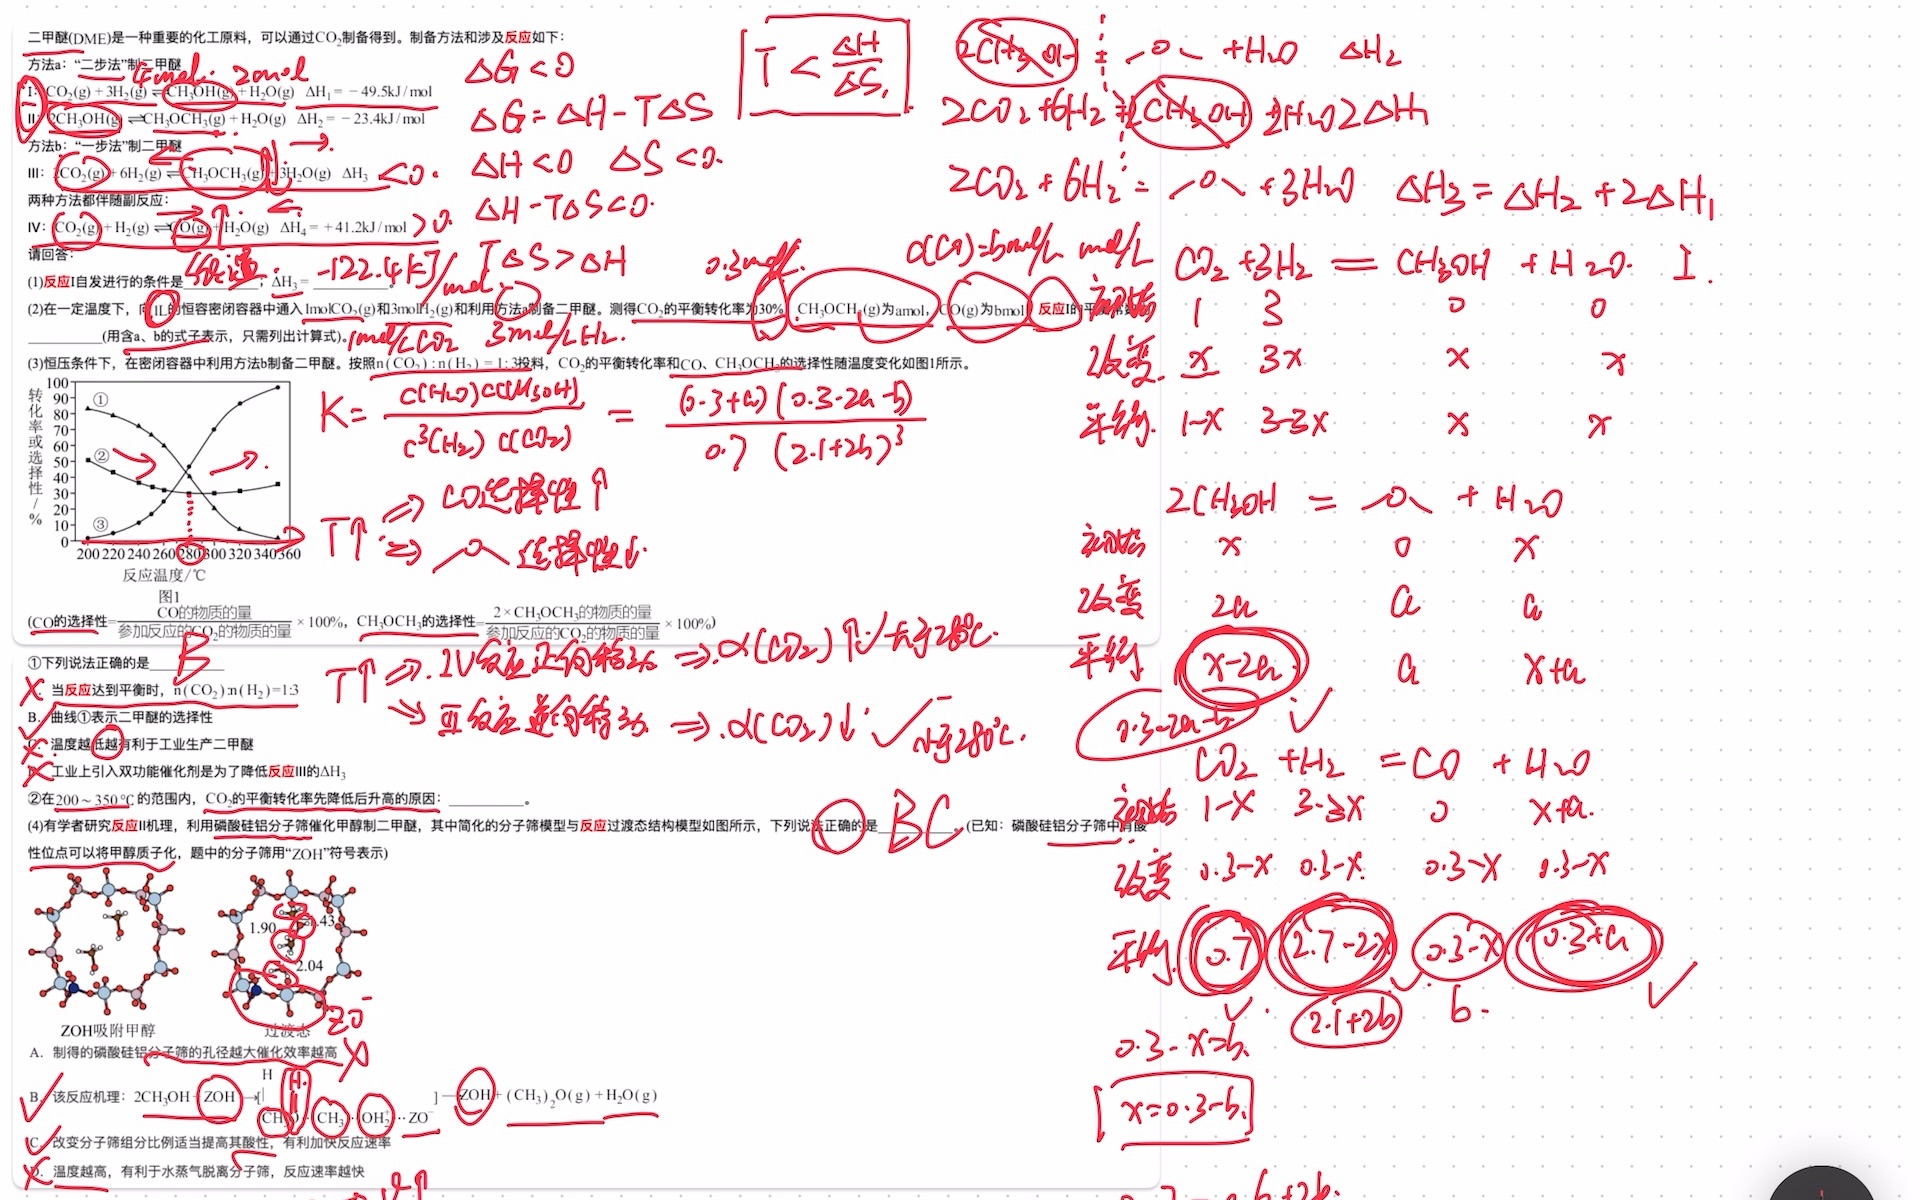 二甲醚(DME)是一种重要的化工原料，可以通过CO₂制备得到。制备方法和涉及反应如下：
方法a：“二步法”制二甲醚
4mol. 2mol
I：CO₂(g)+3H₂(g)⇌CH₃OH(g)+H₂O(g) ΔH₁=－49.5kJ/mol
II：2CH₃OH(g)⇌CH₃OCH₃(g)+H₂O(g) ΔH₂=－23.4kJ/mol
方法b：“一步法”制二甲醚
III：2CO₂(g)+6H₂(g)⇌CH₃OCH₃(g)+3H₂O(g) ΔH₃ <0.
两种方法都伴随副反应：
IV：CO₂(g)+H₂(g)⇌CO(g)+H₂O(g) ΔH₄=+41.2kJ/mol >0.
请回答：
(1)反应I自发进行的条件是 低温. ，ΔH₃= -122.4kJ/mol 。
(2)在一定温度下，向1L的恒容密闭容器中通入1molCO₂(g)和3molH₂(g)和利用方法a制备二甲醚。测得CO₂的平衡转化率为30%，CH₃OCH₃(g)为amol，CO(g)为bmol，反应I的平
(用含a、b的式子表示，只需列出计算式)。
1mol/L CO₂ 3mol/L H₂.
(3)恒压条件下，在密闭容器中利用方法b制备二甲醚。按照n(CO₂):n(H₂)=1:3投料，CO₂的平衡转化率和CO、CH₃OCH₃的选择性随温度变化如图1所示。
转化率或选择性/%
100
90
80
70
60
50
40
30
20
10
0
①
②
③
200 220 240 260 280 300 320 340 360
反应温度/℃
图1
(CO的选择性=CO的物质的量/参加反应的CO₂的物质的量×100%，CH₃OCH₃的选择性=2×CH₃OCH₃的物质的量/参加反应的CO₂的物质的量×100%)
①下列说法正确的是 B
A．当反应达到平衡时，n(CO₂):n(H₂)=1:3
B．曲线①表示二甲醚的选择性
C．温度越低越有利于工业生产二甲醚
D．工业上引入双功能催化剂是为了降低反应III的ΔH₃
②在200～350℃的范围内，CO₂的平衡转化率先降低后升高的原因：。
(4)有学者研究反应II机理，利用磷酸硅铝分子筛催化甲醇制二甲醚，其中简化的分子筛模型与反应过渡态结构模型如图所示，下列说法正确的是 BC 。(已知：磷酸硅铝分子筛中有酸
性位点可以将甲醇质子化，题中的分子筛用“ZOH”符号表示)
1.90
2.04
ZO⁻
ZOH吸附甲醇
过渡态
A．制得的磷酸硅铝分子筛的孔径越大催化效率越高
B．该反应机理：2CH₃OH+ZOH→[CH₃O···CH₃···OH₂⁺···ZO⁻]→ZOH+(CH₃)₂O(g)+H₂O(g)
H
C．改变分子筛组分比例适当提高其酸性，有利加快反应速率
D．温度越高，有利于水蒸气脱离分子筛，反应速率越快
ΔG<0
ΔG=ΔH-TΔS
ΔH<0 ΔS<0.
ΔH-TΔS<0.
TΔS>ΔH
T<ΔH/ΔS.
0.3mol/L
K=c(H₂O)c(CH₃OH)/c³(H₂)c(CO₂)=(0.3+a)(0.3-2a-b)/0.7(2.1+2b)³
T↑⇒CO选择性↑
⇒选择性↓.
T↑⇒.IV反应正向移动⇒.α(CO₂)↑ 大于280℃.
⇒III反应逆向移动⇒.α(CO₂)↓ 小于280℃.
2CH₃OH = +H₂O ΔH₂
2CO₂+6H₂=2CH₃OH+2H₂O 2ΔH₁
2CO₂+6H₂= +3H₂O ΔH₃=ΔH₂+2ΔH₁
mol/L
CO₂+3H₂=CH₃OH+H₂O. I.
初始 1 3 0 0
改变. x 3x x x
平衡. 1-x 3-3x x x
2CH₃OH = +H₂O
初始 x 0 x
改变 2a a a
平衡. x-2a a x+a
0.3-2a-b
CO₂+H₂=CO+H₂O
初始 1-x 3-3x 0 x+a.
改变 0.3-x 0.3-x. 0.3-x 0.3-x
平衡. 0.7 2.7-2x 0.3-x 0.3+a
2.1+2b b.
0.3-x=b.
x=0.3-b.